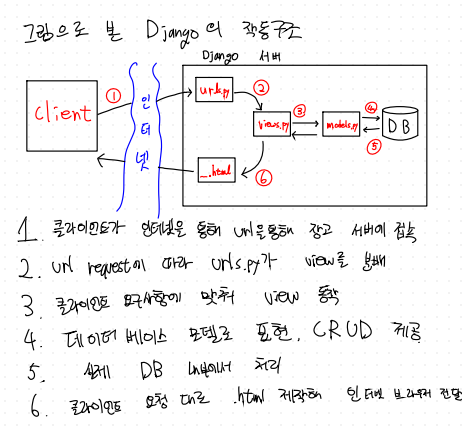 그림으로 본 Django의 작동구조
Django 서버
client
①
인터넷
urls.py
②
views.py
③
models.py
④
DB
⑤
_.html
⑥
1. 클라이언트가 인터넷을 통해 url을통해 장고 서버에 접속
2. url request에 따라 urls.py가 view를 분배
3. 클라이언트 요구사항에 맞춰 view 동작
4. 데이터베이스 모델로 표현, CRUD 제공
5. 실제 DB 내부에서 처리
6. 클라이언트 요청 대로 .html 제작해 인터넷 브라우저 전달